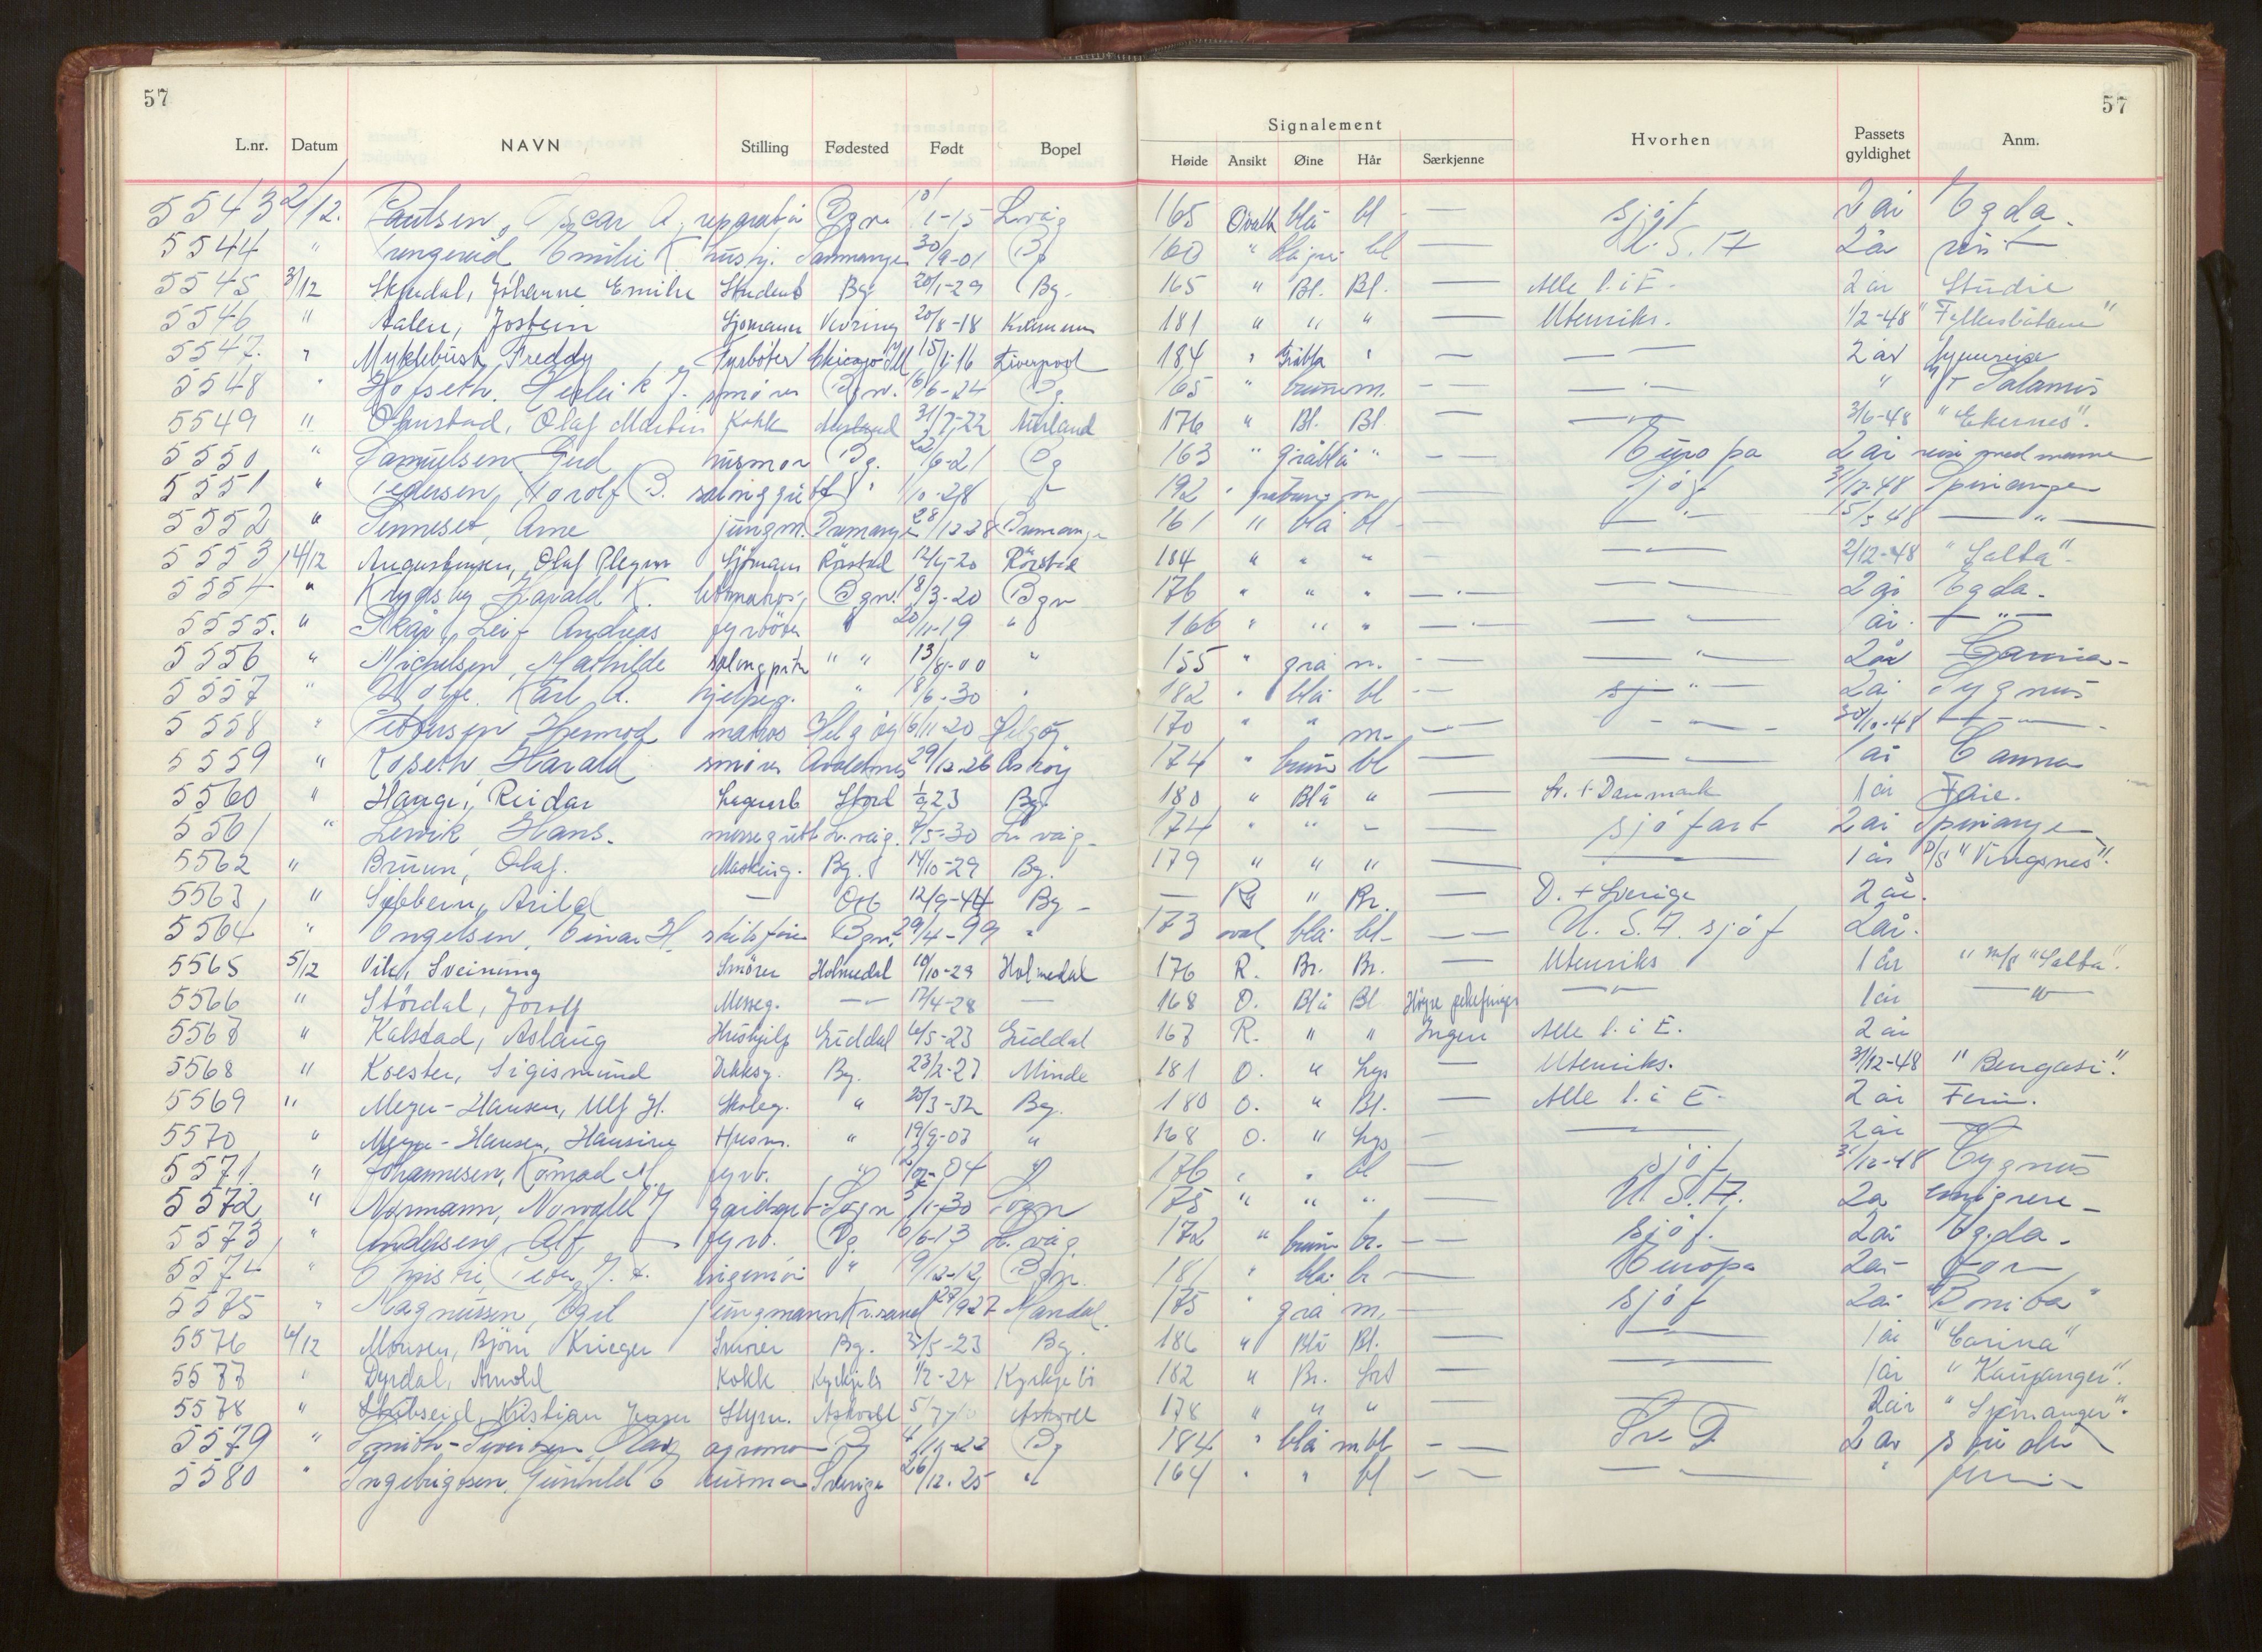 57
57
Signalement
L.nr. Datum NAVN Stilling Fødested Født Bopel Høide Ansikt Øine Hår Særkjenne Hvorhen Passets gyldighet Anm.
5543 2/12. Paulsen, Oscar A. reparatør Bgn. 1-15 L.våg 165 Ovalt blå bl — sjöf 2 år Egda.
5544 " Emilie K husHj. 30/9-01 Bg 160 " bl — U.S.A 2 år
5545 3/12 Johanne Emilie Student Bg 20/1-29 Bg. 165 " Bl. Bl. — Alle l. i E. 2 år Studie
5546 " Aalen, Jostein Sjömann Vevring 20/8-18 181 " " " — Utenriks. 1/2-48
5547. " Myklebust, Freddy Fyrböter Chicago Ill 16 Liverpool 184 " Gråblå " — — 2 år
5548 " Hofseth, J. smører Bgn. 16/6-24 Bg. 165 " brune m. — — — " — " M/T Salamis
5549 " Olaf Martin Kokk Aurland 31/7-22 Aurland 176 " Bl. Bl. — — " — 3/6-48 "Ekernes".
5550 " Samuelsen, Gerd husmor Bg. 22/6-21 Bg 163 " gråblå " — — Europa 2 år reise med mann
5551 " Pedersen, Torolf B. salonggutt " 1/10-28 192 " m — Sjöf 31/12-48 Spinanger
5552 " Tenneset, Arne jungm. 28/12-28 161 " blå bl — — " — 15/3 48 — " —
5553 4/12 Augustinsen, Olaf Sjömann Rörstad 12/4-20 Rörstad 184 " " " — — 2/12-48 "Salta".
5554 " Harald K. Bgn. 18/3-20 Bgn 176 " " " — " — — 2 år Egda.
5555. " Skår, Leif Andreas fyrböter " 20/11-19 " 166 " " " — " — — 1 år. — " —
5556 " Michelsen, Mathilde salongpike " " 13/8-00 " 155 " grå m. — — " — 2 år
5557 " Karl A. hjelpeg. " 18/6-30 " 182 " blå bl — sj " — 2 år Cygnus
5558 " Pettersen Hermod matros Helgöy 6/11-20 Helgöy 170 " " m. — " — 30/10-48 — " —
5559 " Roseth Harald smører Avaldsnes 29/12-26 Asköy 174 " brun bl — — " — 1 år Canna
5560 " Hauge, Reidar Stord 1/9 23 Bg. 180 " Blå " — Sv. + Danmark 1 år Ferie.
5561 " Lervik, Hans. messegutt L.våg. 9/5-30 L. våg. 174 " " — sjöfart 2 år Spinanger
5562 " Bruun, Olaf. Masking. Bg. 14/10-29 Bg. 179 " " " — — 1 år D/S "Vingsnes".
5563 " Sibbern, Arild — Oslo 12/9-44 Bg — — " Br. — D. + Sverige 2 år.
5564 " Engelsen, Einar H. skibsfører Bgn. 29/4-99 " 173 oval blå bl- — — U.S.A. sjöf 2 år.
5565 5/12 Vik, Sveinung Smörer Holmedal 10/10-29 Holmedal 176 R. Br. Br. — Utenriks 1 år " m/s "Salta".
5566 " Stördal, Jorolf Messeg. — " — 12/4-28 — 168 O. Blå Bl Höyre pekefinger — " — 1 år — " —
5567 " Kalstad, Aslaug Hushjelp Guddal 4/5-23 Guddal 167 R. " " Ingen Alle l. i E. 2 år
5568 " Koester, Sigismund Dekksg. Bg. 23/2-27 Minde 181 O. " Lys — Utenriks. 31/12-48 "Bengasi".
5569 " Meyer-Hansen, Ulf H. Skoleg. " 20/3-32 Bg. 180 O. " Bl. — Alle l. i E. 2 år Ferie.
5570 " Meyer-Hansen, Hansine Husm. " 19/9-07 " 168 O. " Lys — — 2 år — " —
5571. " Johannesen, Konrad M. fyrb. " 04 " 176 " " bl — sjöf 31/12-48 Cygnus
5572 " Normann, Norvald J gårdsgutt Sogn 5/1-30 Sogn 175 " " " — U.S.A. 2 å emigrere
5573 " Andersen, Alf, fyrb. Bg. 10/6-13 L. våg 172 " brun br. — — sjöf. 2 år Egda.
5574 " Christie, ingeniör " 19/12-12 Bgn. 181 " blå br — Europa 2 år
5575 " Magnussen, Egil jungmann Kr.sand 27/9 27 Mandal. 175 " grå m. — sjöf 2 år "Ronita"
5576 6/12 Monsen, Björn Krieger Smörer Bg. 3/5-23 Bg. 186 " Blå Bl. — — 1 år "Carina"
5577 " Dyrdal, Arnold Kokk Kyrkjebö 1/2-27 Kyrkjebö 182 " Br. Sort — — 1 år "Kaupanger".
5578 " Kristian Styrm. Askvoll 5/7 Askvoll 178 " " " — — 2 år "Spinanger".
5579 " Smith-Sivertsen, Olav agronom Bg 4/11-22 Bg 184 " blå m.bl — — Sv. D 2 år studie
5580 " Ingebrigtsen, Gunhild husmor Sverige 26/12-25 " 164 " " bl — — — " — "